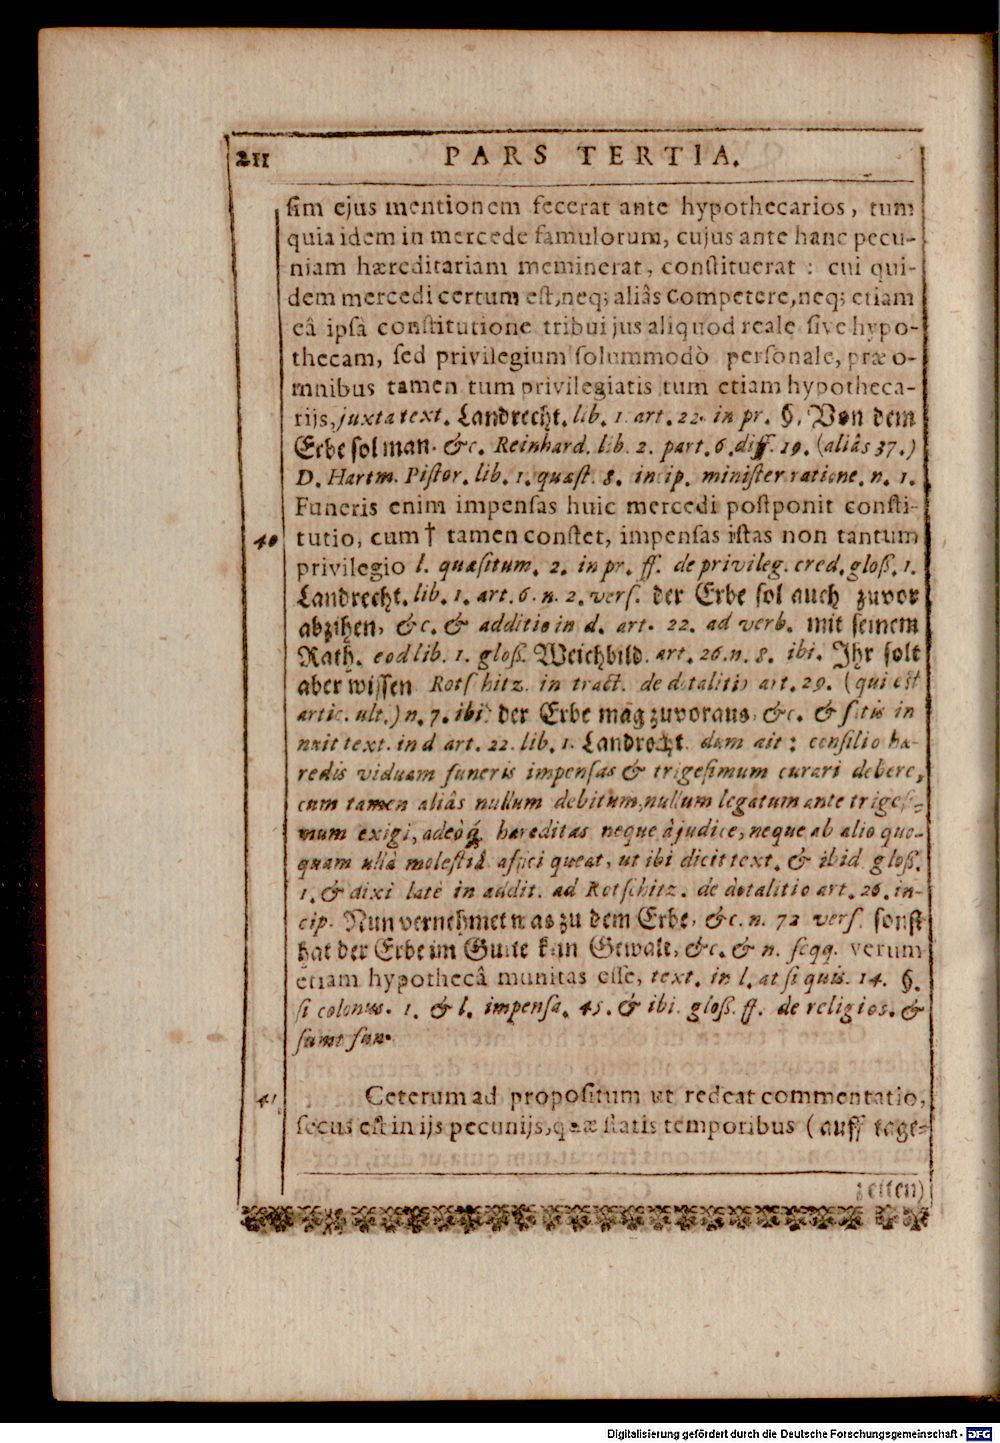 211 PARS TERTIA.
sim ejus mentionem fecerat ante hypothecarios, tum
quia idem in mercede famulorum, cujus ante hanc pecu-
niam hæreditariam meminerat, constituerat : cui qui-
dem mercedi certum est, neq; aliâs competere, neq; etiam
eâ ipsâ constitutione tribui jus aliquod reale sive hypo-
thecam, sed privilegium solummodò personale, præ o-
mnibus tamen tum privilegiatis tum etiam hypotheca-
rijs, juxta text. Landrecht. lib. 1. art. 22. in pr. §. Von dem
Erbe sol man. &c. Reinhard. lib. 2. part. 6. diff. 19. (aliâs 37.)
D. Hartm. Pistor. lib. 1. quæst. 8. in cip. minister ratione. n. 1.
Funeris enim impensas huic mercedi postponit consti-
40 tutio, cum † tamen constet, impensas istas non tantum
privilegio l. quæsitum. 2. in pr. ff. de privileg. cred. gloß. 1.
Landrecht. lib. 1. art. 6. n. 2. vers. der Erbe sol auch zuvor
abzihen, &c. & additio in d. art. 22. ad verb. mit seinem
Rath. eod lib. 1. gloß. Weichbild. art. 26. n. 8. ibi. Ihr solt
aber wissen Rotschitz. in tract. de dotalitio art. 29. (qui est
artic. ult.) n. 7. ibi: der Erbe mag zuvoraus, &c. & satis in
nuit text. in d art. 22. lib. 1. Landrecht. dum ait : consilio hæ-
redis viduam funeris impensas & trigesimum curari debere,
cum tamen aliâs nullum debitum, nullum legatum ante trigesi-
mum exigi, adeòq́; hæreditas neque à judice, neque ab alio quo-
quam ullâ molestiâ affici queat, ut ibi dicit text. & ibid gloß.
1. & dixi latè in addit. ad Rotschitz. de dotalitio art. 26. in-
cip. Nun vernehmet was zu dem Erbe, &c. n. 72 vers. sonst
hat der Erbe im Gutte kein Gewalt, &c. & n. seqq. verum
etiam hypothecâ munitas esse, text. in l. at si quis. 14. §.
si colonus. 1. & l. impensa. 45. & ibi. gloß. ff. de religios. &
sumt fun.
41 Ceterum ad propositum ut redeat commentatio,
secus est in ijs pecunijs, quæ statis temporibus (auff tage-
zeiten)
Digitalisierung gefördert durch die Deutsche Forschungsgemeinschaft - DFG